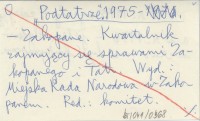 "Podtatrze", 1975-
- Zakopane. Kwartalnik
zajmujący się sprawami Za-
kopanego i Tatr. Wyd.:
Miejska Rada Narodowa w Zako-
panem. Red.: komitet.